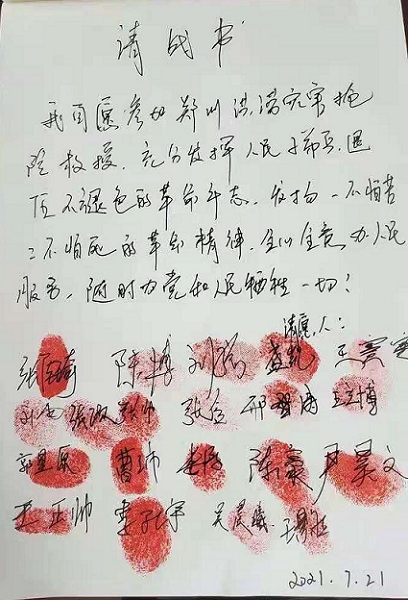 请战书
我自愿参加郑州洪涝灾害抢
险救援,充分发挥人民子弟兵退
伍不褪色的革命斗志,发扬一不怕苦
二不怕死的革命精神,全心全意为人民
服务,随时为党和人民牺牲一切!
请愿人:
陈博 刘 王
张 张
郭 曹帅 陈豪 尹昊文
王亚帅 李子宇 吴晨曦 王
2021.7.21